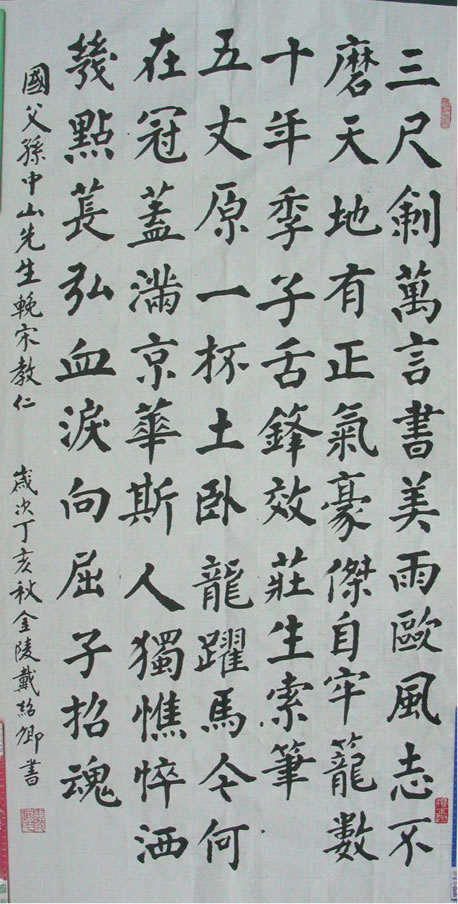 三尺劍萬言書美雨歐風志不
磨天地有正氣豪傑自牢籠數
十年季子舌鋒效莊生索筆
五丈原一杯土卧龍躍馬今何
在冠蓋滿京華斯人獨憔悴洒
幾點萇弘血淚向屈子招魂
國父孫中山先生輓宋教仁 歲次丁亥秋金陵戴紹卿書